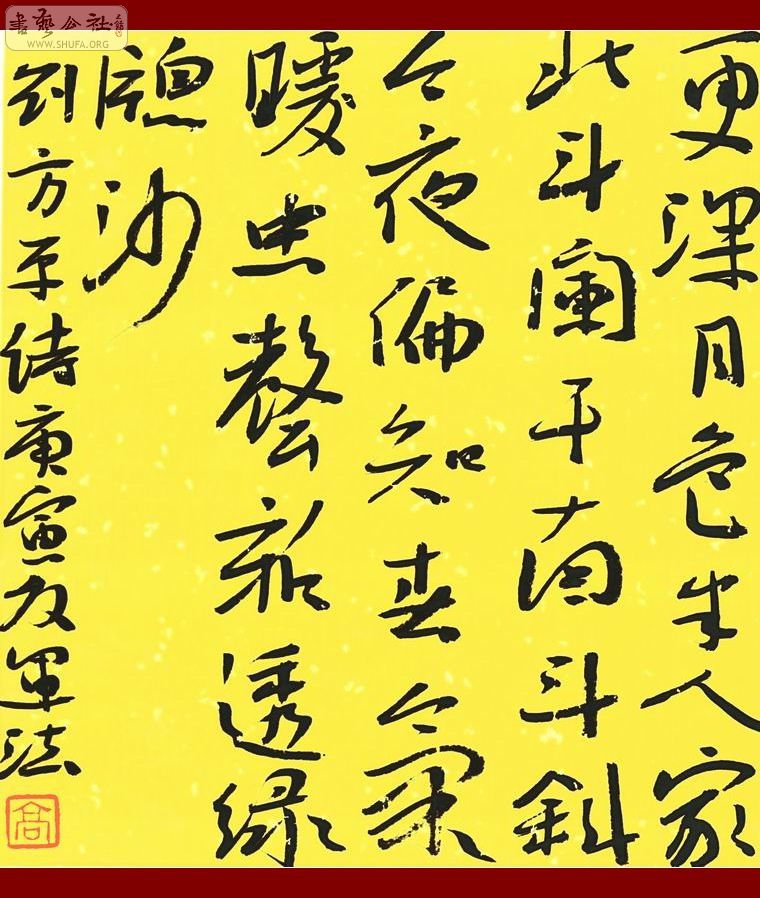 書藝公社
WWW.SHUFA.ORG
更深月色半人家
北斗闌干南斗斜
今夜偏知春氣
暖虫聲新透绿
牕沙
刘方平诗庚寅友军法
高